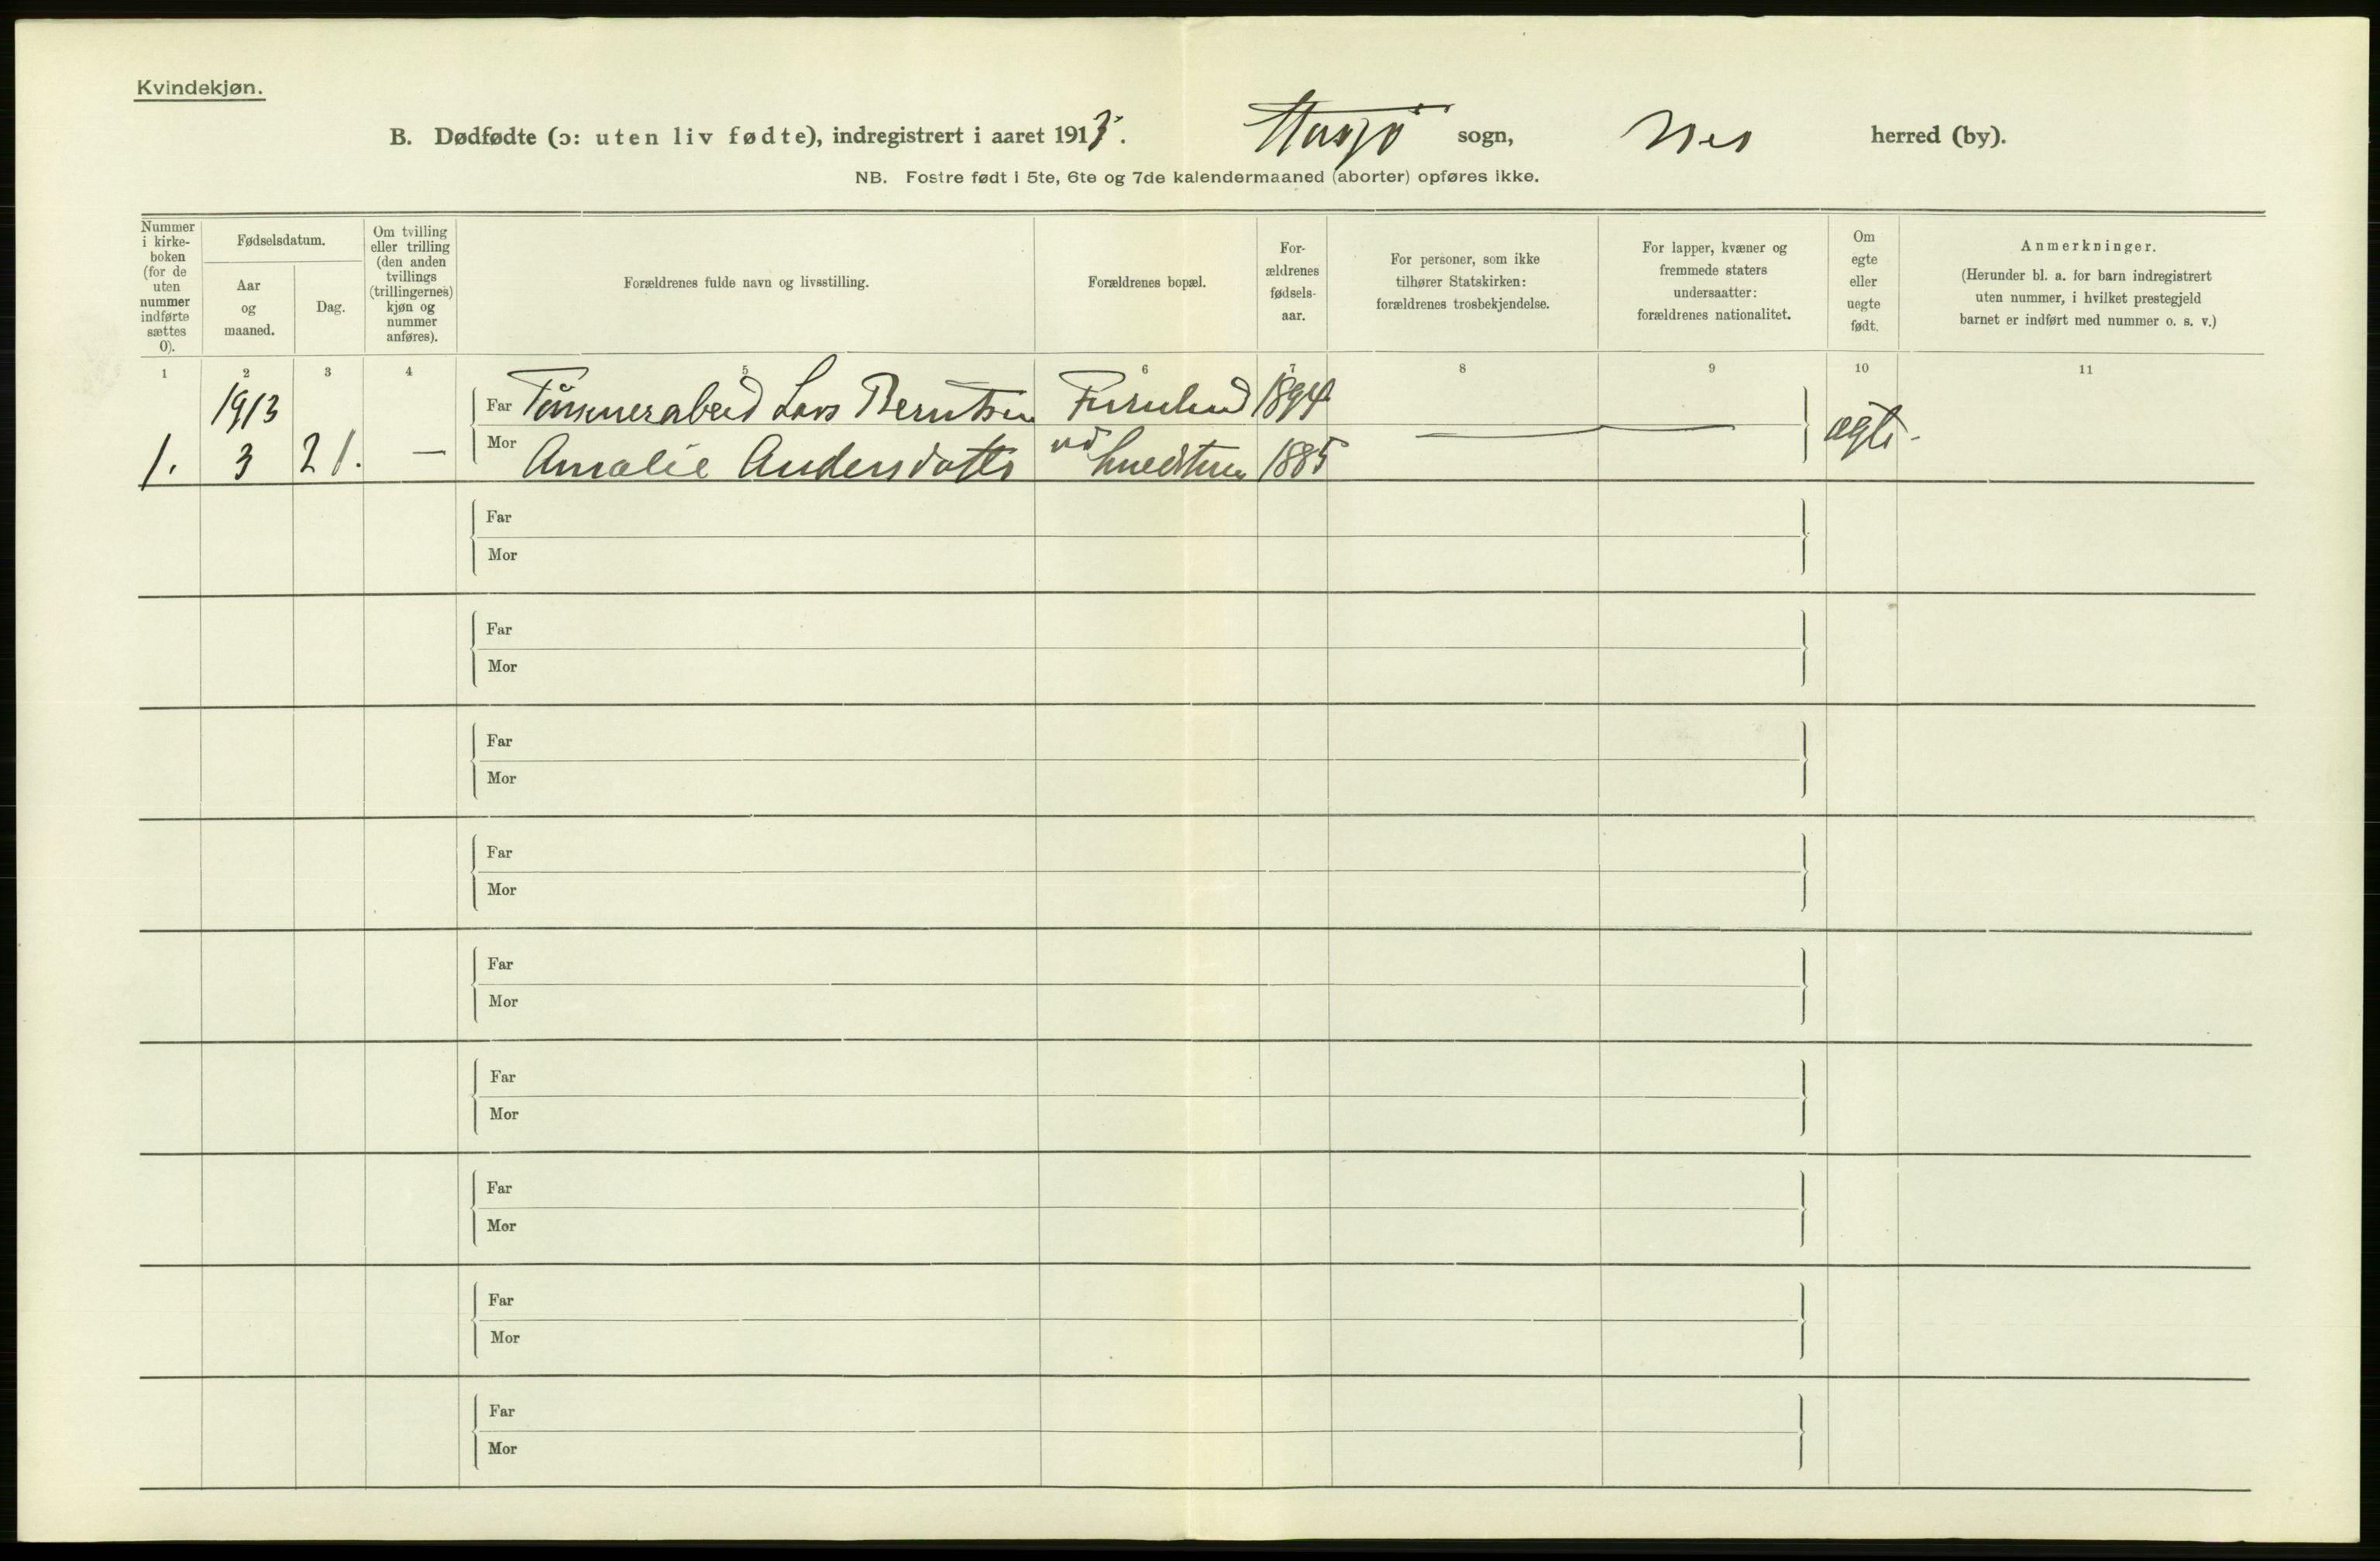 Kvindekjøn.
B. Dødfødte (ɔ: uten liv fødte), indregistrert i aaret 1913. sogn, Nes herred (by).
NB. Fostre født i 5te, 6te og 7de kalendermaaned (aborter) opføres ikke.
Nummer i kirke-boken (for de uten nummer indførte sættes 0).
Fødselsdatum.
Aar og maaned.
Dag.
Om tvilling eller trilling (den anden tvillings (trillingernes) kjøn og nummer anføres).
Forældrenes fulde navn og livsstilling.
Forældrenes bopæl.
For-ældrenes fødsels-aar.
For personer, som ikke tilhører Statskirken: forældrenes trosbekjendelse.
For lapper, kvæner og fremmede staters undersaatter: forældrenes nationalitet.
Om egte eller uegte født.
Anmerkninger.
(Herunder bl. a. for barn indregistrert uten nummer, i hvilket prestegjeld barnet er indført med nummer o. s. v.)
1 2 3 4 5 6 7 8 9 10 11
1913 Far Lars Berntsen Furulund 1894
1. 3 21. — Mor Amalie Andersdatter 1885 — — ægte.
Far
Mor
Far
Mor
Far
Mor
Far
Mor
Far
Mor
Far
Mor
Far
Mor
Far
Mor
Far
Mor